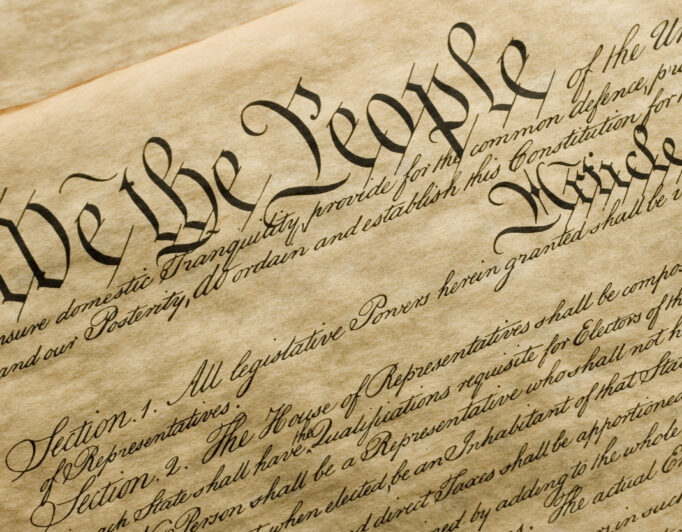 We the People of the Un
nsure domestic Tranquility, provide for the common defence, pr
and our Posterity, do ordain and establish this Constitution for
Article
Section. 1. All legislative Powers herein granted shall be v
of Representatives.
Section. 2. The House of Representatives shall be compos
ach State shall have the Qualifications requisite for Electors of th
No Person shall be a Representative who shall not h
when elected, be an Inhabitant of that Sta
d direct Taxes shall be apportioned
ed by adding to the whole
The actual En
in such